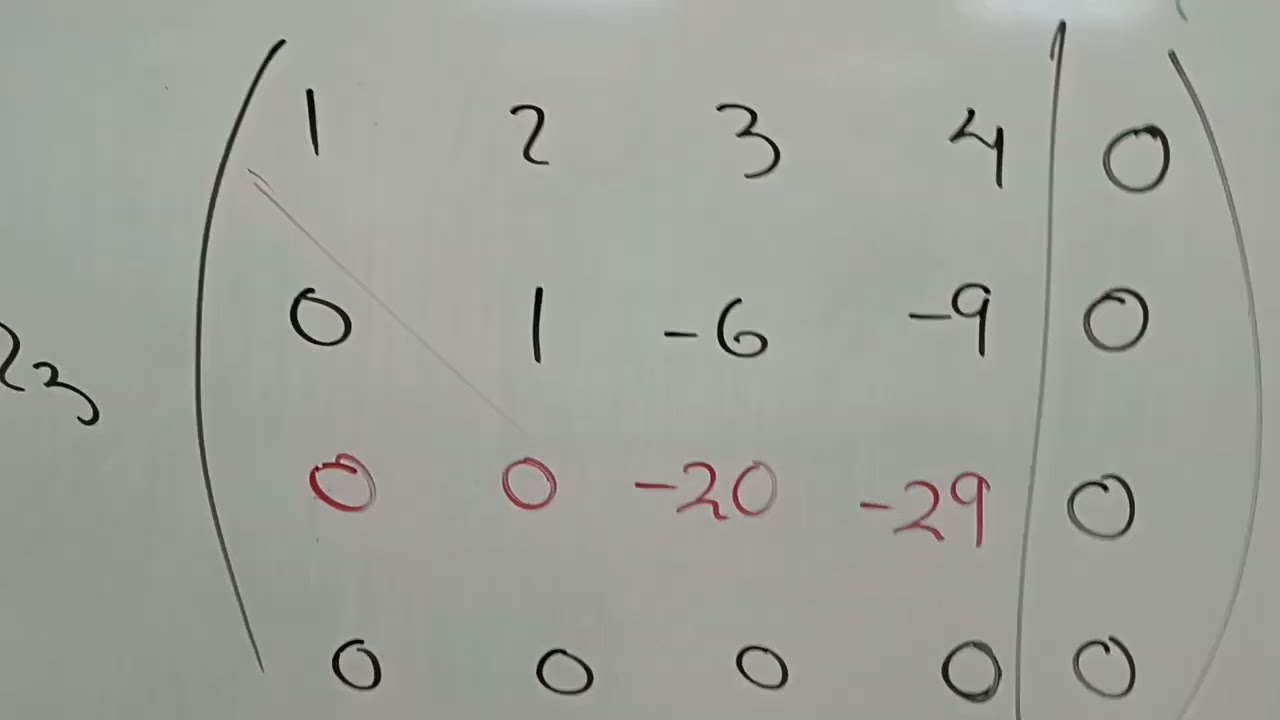 1 2 3 4 | 0
0 1 -6 -9 | 0
0 0 -20 -29 | 0
0 0 0 0 | 0